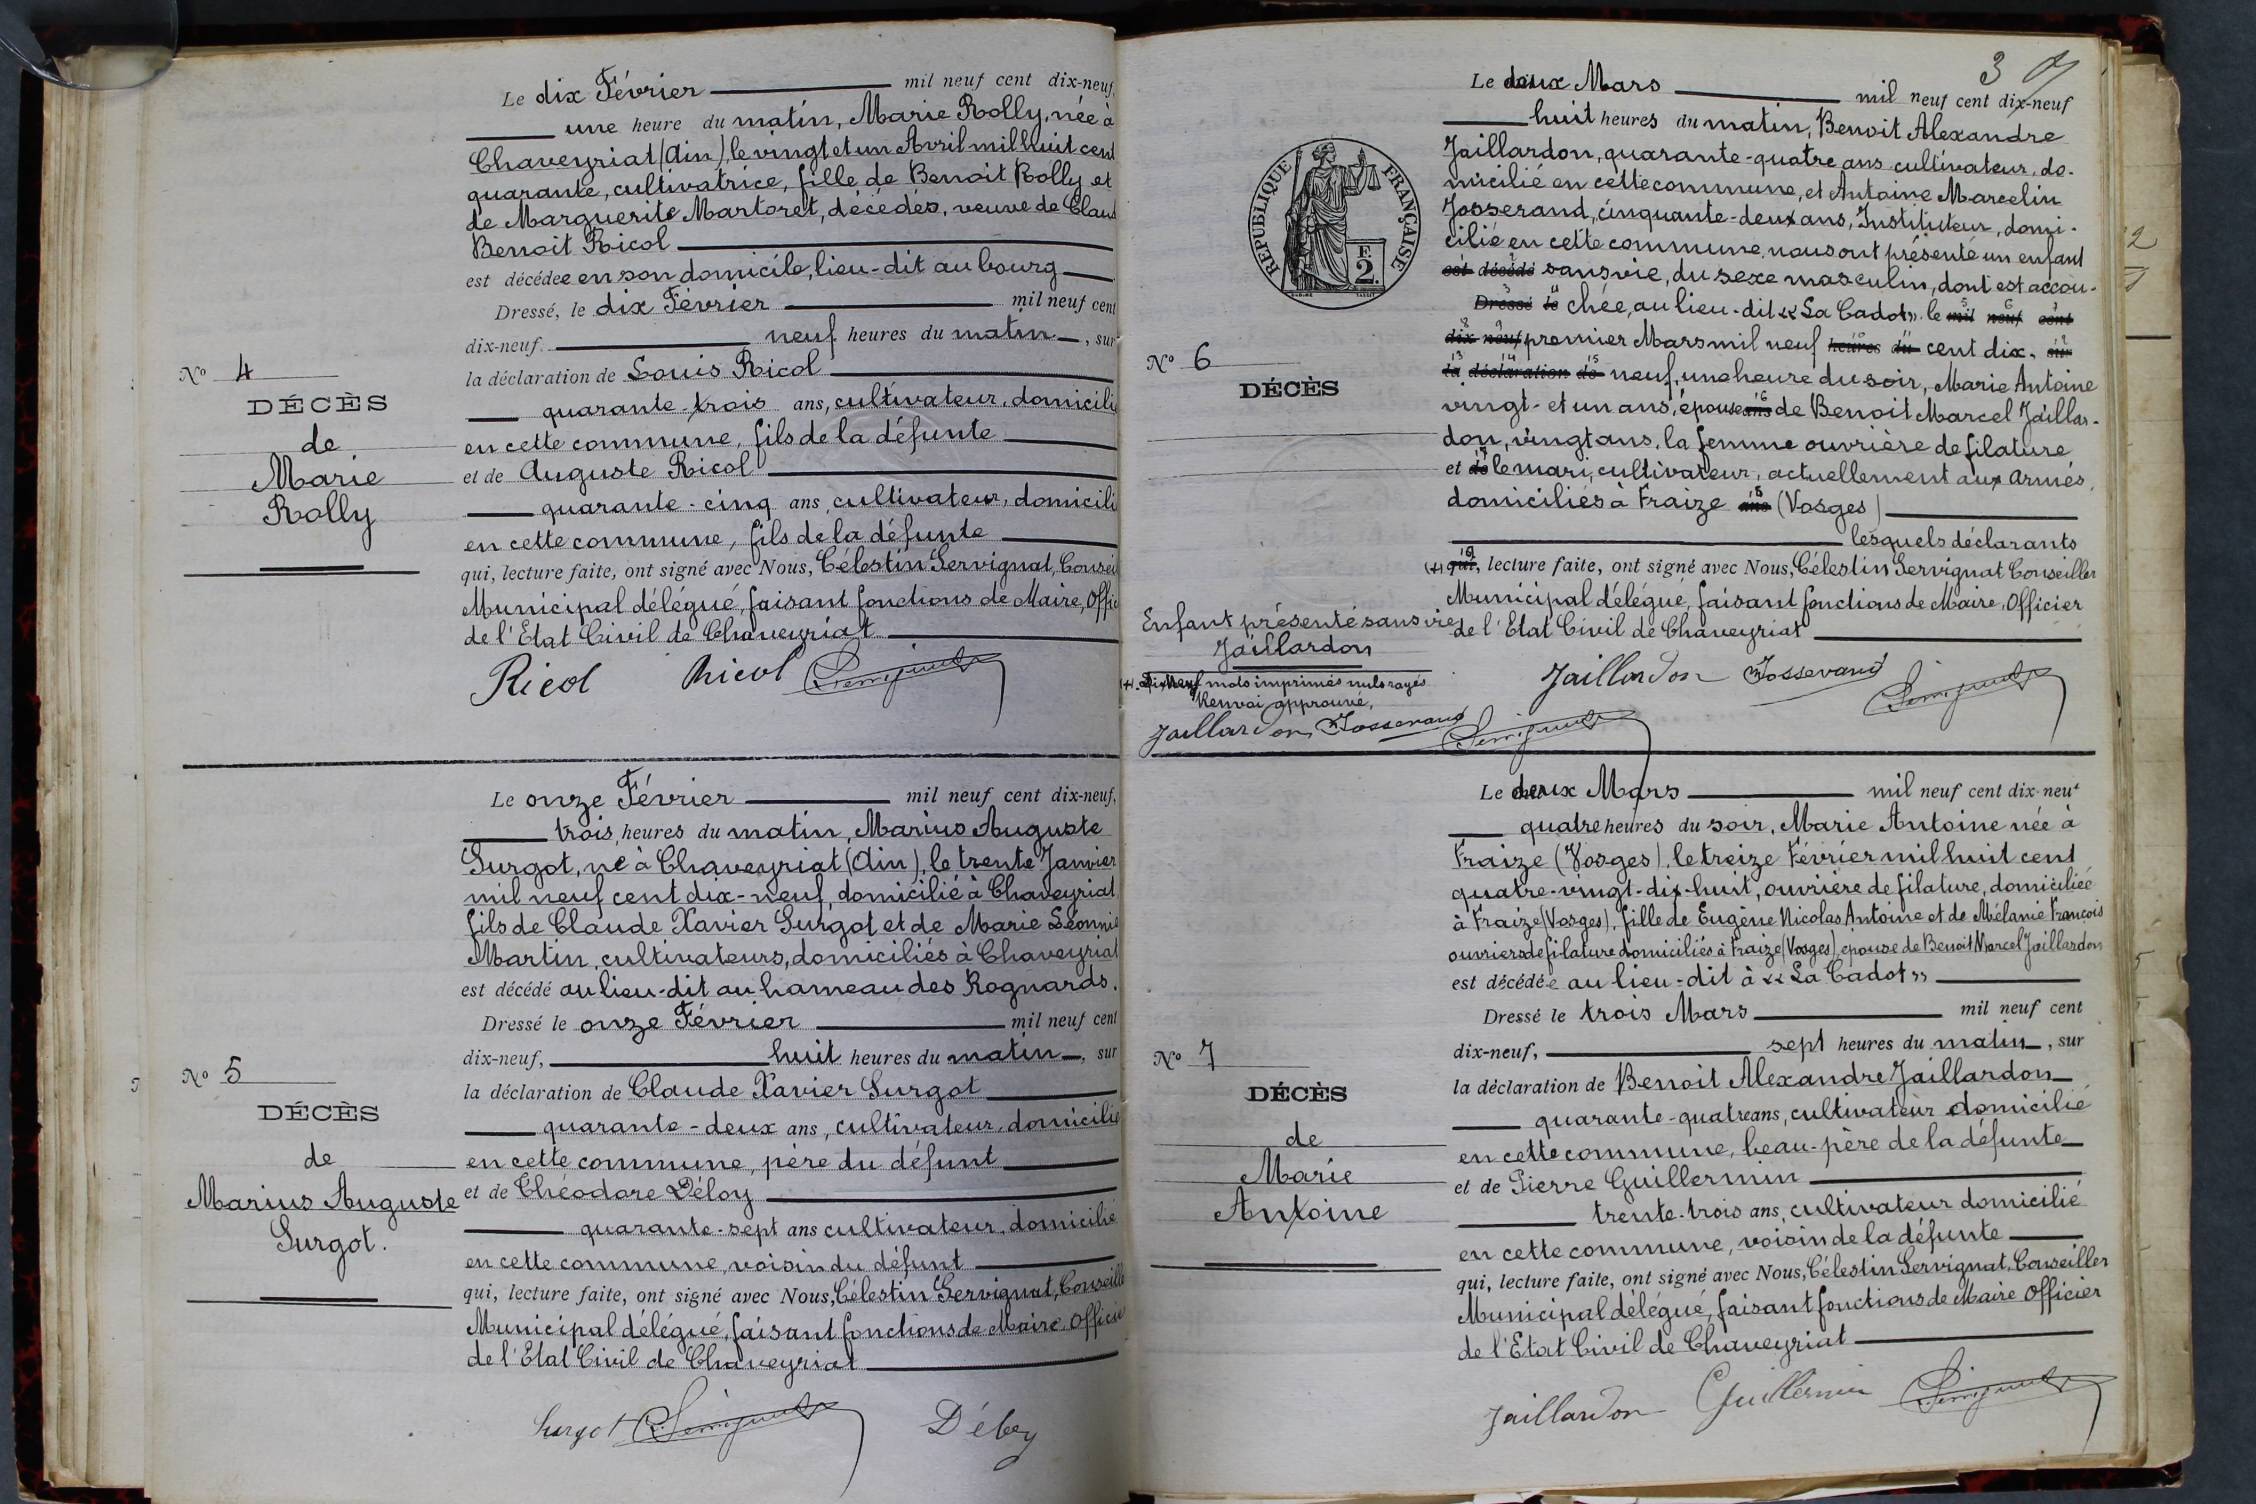 Le dix Février mil neuf cent dix-neuf,
une heure du matin, Marie Rolly, née à
Chaveyriat (Ain), le vingt et un Avril mil huit cent
quarante, cultivatrice, fille de Benoit Rolly et
de Marguerite Martoret, décédés, veuve de Claud
Benoit Ricol
est décédée en son domicile, lieu-dit au bourg
Dressé, le dix Février mil neuf cent
dix-neuf, neuf heures du matin, sur
la déclaration de Louis Ricol
quarante-trois ans, cultivateur, domicili
en cette commune, fils de la défunte
et de Auguste Ricol
quarante-cinq ans, cultivateur, domicili
en cette commune, fils de la défunte
qui, lecture faite, ont signé avec Nous, Célestin Servignat, Consei
Municipal délégué, faisant fonctions de Maire, Offic
de l'Etat Civil de Chaveyriat
Ricol Ricol Servignat
No 4
DÉCÈS
de
Marie
Rolly
Le onze Février mil neuf cent dix-neuf,
trois heures du matin, Marius Auguste
Surgot, né à Chaveyriat (Ain), le trente Janvier
mil neuf cent dix-neuf, domicilié à Chaveyriat
fils de Claude Xavier Surgot et de Marie Léonnie
Martin, cultivateurs, domiciliés à Chaveyriat
est décédé au lieu-dit au hameau des Rognards.
Dressé le onze Février mil neuf cent
dix-neuf, huit heures du matin, sur
la déclaration de Claude Xavier Surgot
quarante-deux ans, cultivateur, domicilié
en cette commune, père du défunt
et de Théodore Déloy
quarante-sept ans cultivateur, domicilié
en cette commune, voisin du défunt
qui, lecture faite, ont signé avec Nous, Célestin Servignat, Conseille
Municipal délégué, faisant fonctions de Maire, Officie
de l'Etat Civil de Chaveyriat
Surgot Servignat
No 5
DÉCÈS
de
Marius Auguste
Surgot.
3
Le deux Mars mil neuf cent dix-neuf
huit heures du matin, Benoit Alexandre
Jaillardon, quarante-quatre ans cultivateur, do-
micilié en cette commune, et Antoine Marcelin
Josserand, cinquante-deux ans, Instituteur, domi-
cilié en cette commune, nous ont présenté un enfant
est décédé sans vie, du sexe masculin, dont est accou-
Dressé le chée, au lieu-dit « La Cadot », le mil neuf cent
dix neuf premier Mars mil neuf heures du cent dix- sur
la déclaration de neuf, une heure du soir, Marie Antoine
vingt-et un ans, épouse ans de Benoit Marcel Jaillar-
don, vingt ans, la femme ouvrière de filature
et de le mari, cultivateur, actuellement aux armés,
domiciliés à Fraize ans (Vosges)
lesquels déclarants
(+) qui, lecture faite, ont signé avec Nous, Célestin Servignat Conseiller
Municipal délégué, faisant fonctions de Maire, Officier
de l'Etat Civil de Chaveyriat
Jaillardon Josserand Servignat
RÉPUBLIQUE FRANÇAISE
E.
2.
No 6
DÉCÈS
Enfant présenté sans vie
Jaillardon
(+). Dix neuf mots imprimés nuls rayés
Renvoi approuvé,
Jaillardon Josserand Servignat
Le deux Mars mil neuf cent dix-neuf
quatre heures du soir, Marie Antoine née à
Fraize (Vosges), le treize Février mil huit cent
quatre-vingt-dix-huit, ouvrière de filature, domiciliée
à Fraize (Vosges), fille de Eugène Nicolas Antoine et de Mélanie François
ouvriers de filature domiciliés à Fraize (Vosges), épouse de Benoit Marcel Jaillardon
est décédée au lieu-dit à « La Cadot »
Dressé le trois Mars mil neuf cent
dix-neuf, sept heures du matin, sur
la déclaration de Benoit Alexandre Jaillardon
quarante-quatre ans, cultivateur domicilié
en cette commune, beau-père de la défunte
et de Pierre Guillermin
trente-trois ans, cultivateur domicilié
en cette commune, voisin de la défunte
qui, lecture faite, ont signé avec Nous, Célestin Servignat, Conseiller
Municipal délégué, faisant fonctions de Maire Officier
de l'Etat Civil de Chaveyriat
Jaillardon Guillermin Servignat
No 7
DÉCÈS
de
Marie
Antoine